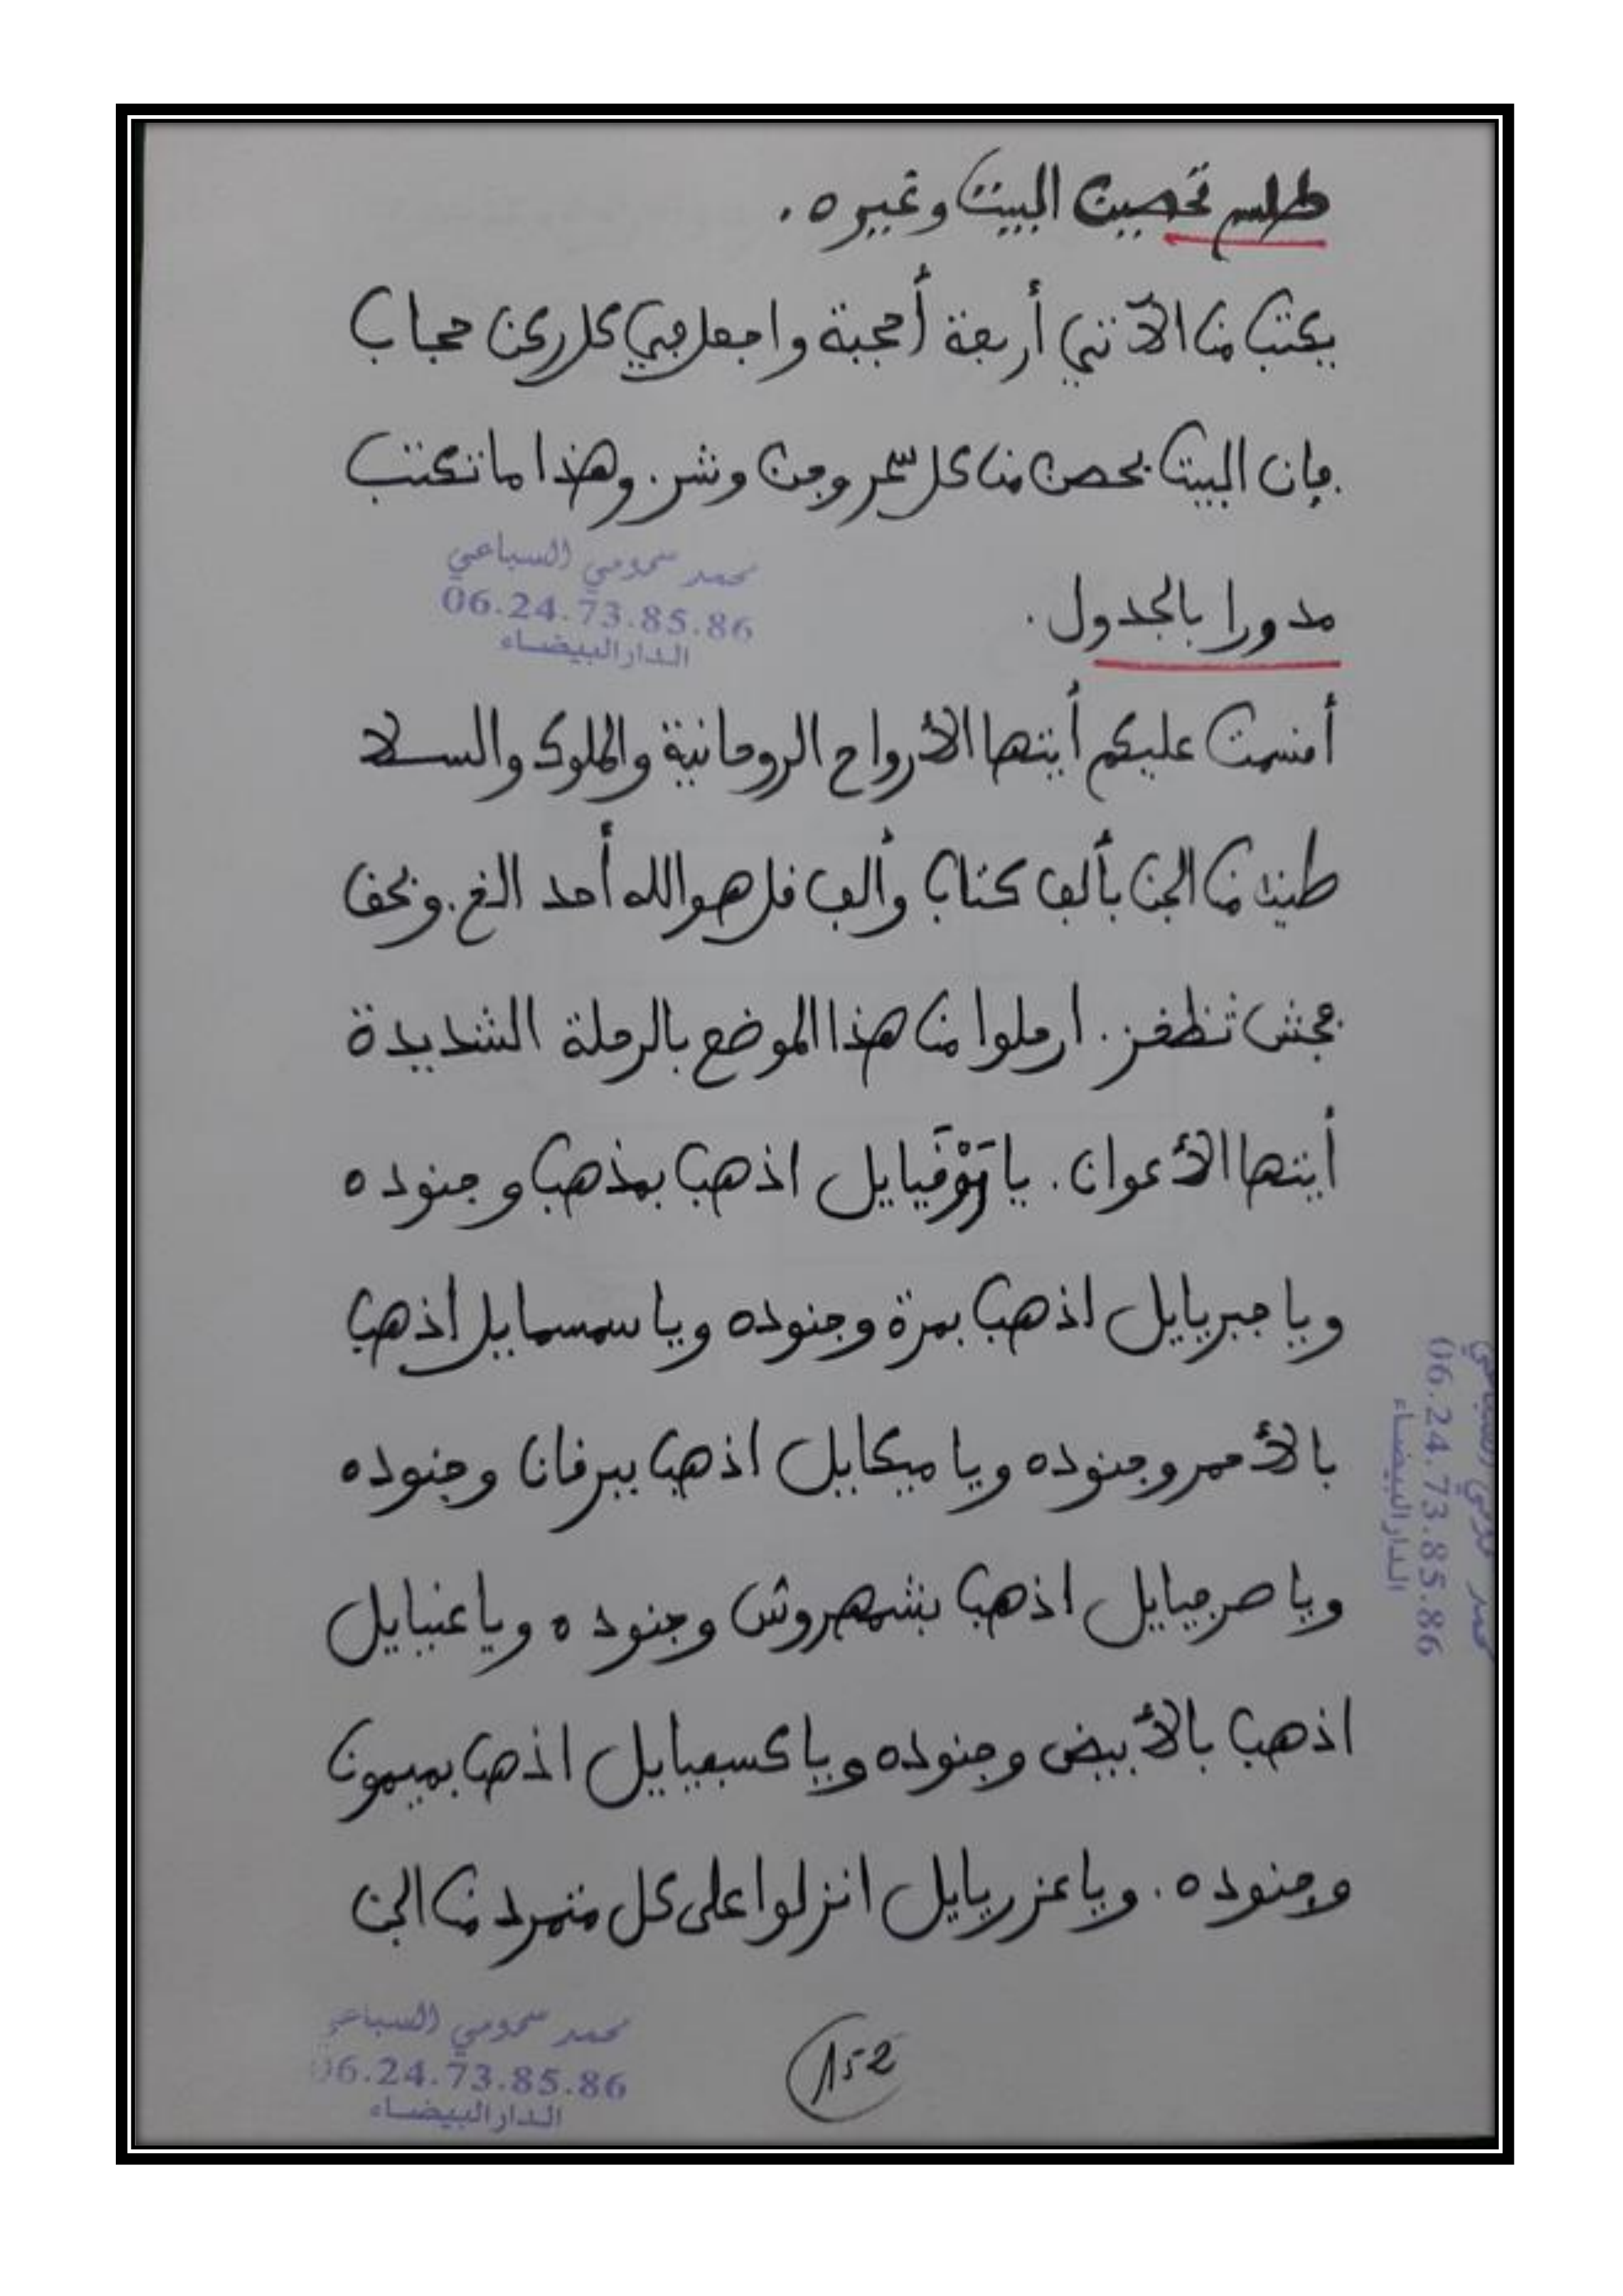 طلسم تحصين البيت وغيره.
يكتب من الآتي أربعة أحجبة واجعل في كل ركن حجاب
فإن البيت يحصن من كل سحر وجن وشر. وهذا ما تكتب
محمد سحومي السباعي
06.24.73.85.86
الدار البيضاء
مدورا بالجدول.
أقسمت عليكم أيتها الأرواح الروحانية والملوك والسلا
طين من الجن بألف كتاب وألف قل هو الله أحد الخ. وبحق
فجش ثظخز. ارحلوا من هذا الموضع بالرحلة الشديدة
أيتها الأعوان. يا رَوْقَيايل اذهب بمذهب وجنوده
ويا جبريايل اذهب بمرة وجنوده ويا سمسمايل اذهب
بالأحمر وجنوده ويا ميكايل اذهب ببرقان وجنوده
ويا صرفيايل اذهب بشمهروش وجنوده ويا عنيايل
اذهب بالأبيض وجنوده ويا كسفيايل اذهب بميمون
وجنوده. ويا عزريايل انزلوا على كل متمرد من الجن
06.24.73.85.86
الدار البيضاء
محمد سحومي السباعي
6.24.73.85.86
الدار البيضاء
152